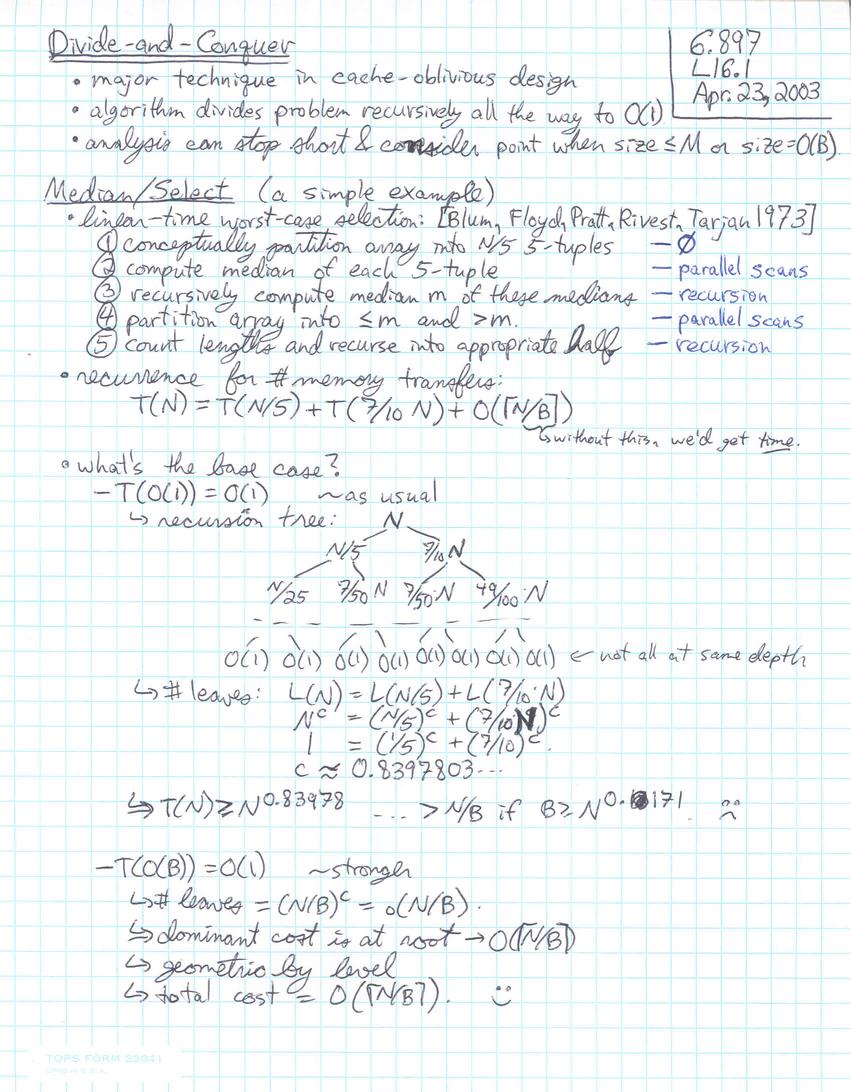 Divide-and-Conquer
6.897
L16.1
Apr. 23, 2003
• major technique in cache-oblivious design
• algorithm divides problem recursively all the way to O(1)
• analysis can stop short & consider point when size ≤ M or size = O(B).
Median/Select (a simple example)
• linear-time worst-case selection: [Blum, Floyd, Pratt, Rivest, Tarjan 1973]
① conceptually partition array into N/5 5-tuples — Ø
② compute median of each 5-tuple — parallel scans
③ recursively compute median m of these medians — recursion
④ partition array into ≤m and >m. — parallel scans
⑤ count lengths and recurse into appropriate half — recursion
• recurrence for # memory transfers:
T(N) = T(N/5) + T(7/10 N) + O(⌈N/B⌉)
↳ without this, we'd get time.
• what's the base case?
– T(O(1)) = O(1) ~as usual
↳ recursion tree: N
N/5 7/10 N
N/25 7/50 N 7/50·N 49/100·N
O(1) O(1) O(1) O(1) O(1) O(1) O(1) O(1) ← not all at same depth
↳ # leaves: L(N) = L(N/5) + L(7/10·N)
N^c = (N/5)^c + (7/10 N)^c
1 = (1/5)^c + (7/10)^c.
c ≈ 0.8397803...
↳ T(N) ≥ N^0.83978 ... > N/B if B ≥ N^ ☹
– T(O(B)) = O(1) ~stronger
↳ # leaves = (N/B)^c = o(N/B).
↳ dominant cost is at root → O(⌈N/B⌉)
↳ geometric by level
↳ total cost = O(⌈N/B⌉). ☺
TOPS FORM 33041